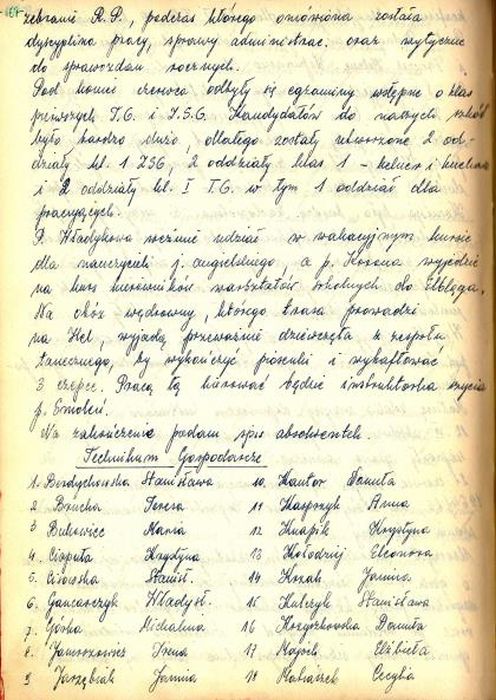 zebranie R.P., podczas którego omówiona została
dyscyplina pracy, sprawy administrac. oraz wytyczne
do sprawozdań rocznych.
Pod koniec czerwca odbyły się egzaminy wstępne do klas
pierwszych T.G. i Z.S.G. Kandydatów do naszych szkół
było bardzo dużo, dlatego zostały utworzone 2 od-
działy kl. 1 ZSG, 2 oddziały klas 1 - kelner i kucharz
i 2 oddziały kl. I T.G. w tym 1 oddział dla
pracujących.
P. Władykowa weźmie udział w wakacyjnym kursie
dla nauczycieli j. angielskiego, a p. wyjedzie
na kurs kierowników warsztatów szkolnych do Elbląga.
Na obóz wędrowny, którego trasa prowadzi
na Hel, wyjadą przeważnie dziewczęta z zespołu
tanecznego, by wykończyć piosenki i wyhaftować
3 czepce. Pracą tą kierować będzie instruktorka szycia
p. Smoleń.
Na zakończenie podam spis absolwentek.
Technikum Gospodarcze
1. Berdychowska Stanisława 10. Kantor Danuta
2. Brucha Teresa 11 Kasprzyk Anna
3 Bukowiec Maria 12 Knapik Krystyna
4. Ciaputa Krystyna 13 Kołodziej Eleonora
5. Cisowska Stanisł. 14 Kozak Janina
6. Gancarczyk Władysł. 15 Kulczyk Stanisława
7. Górka Michalina 16 Danuta
8. Irena 17 Elżbieta
9 Jarzębiak Janina 18 Cecylia